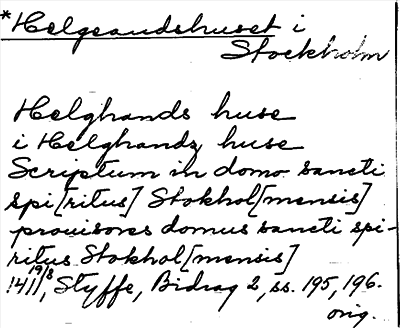 *Helgeandshuset i
Stockholm
Helghands huse
i Helghandz huse
Scriptum in domo sancti
spi[ritus] Stokhol[mensis]
prouisores domus sancti spi-
ritus Stokhol[mensis]
19/8
1411, Styffe, Bidrag 2, ss. 195, 196.
orig.